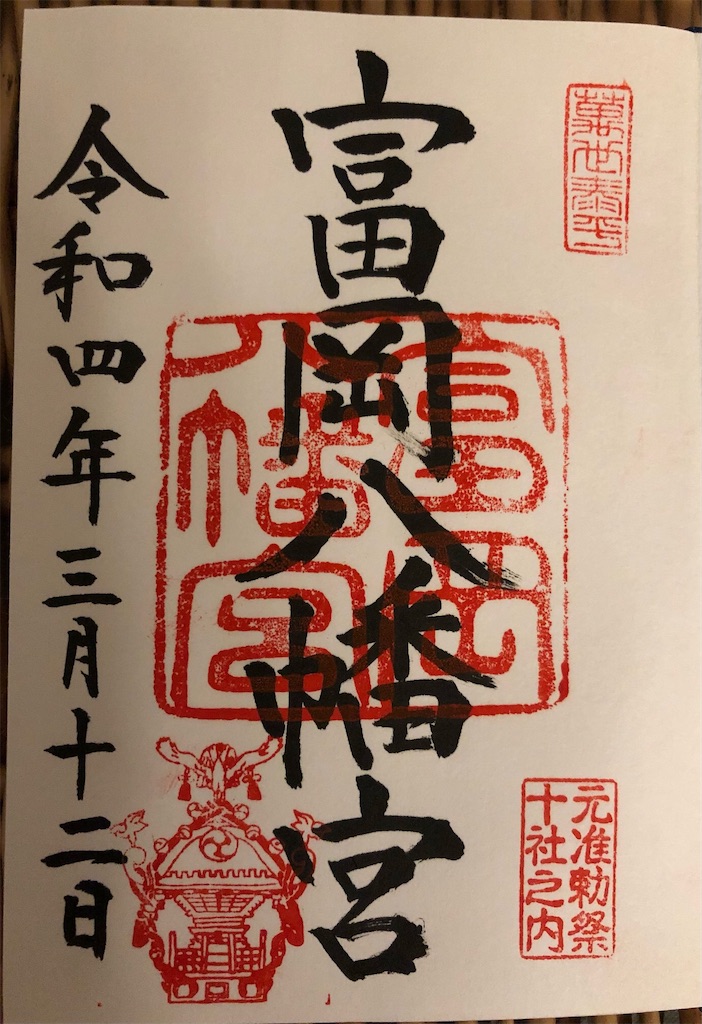 萬世泰平
元准勅祭
十社之内
富岡八幡宮
富岡
八幡宮
令和四年三月十二日